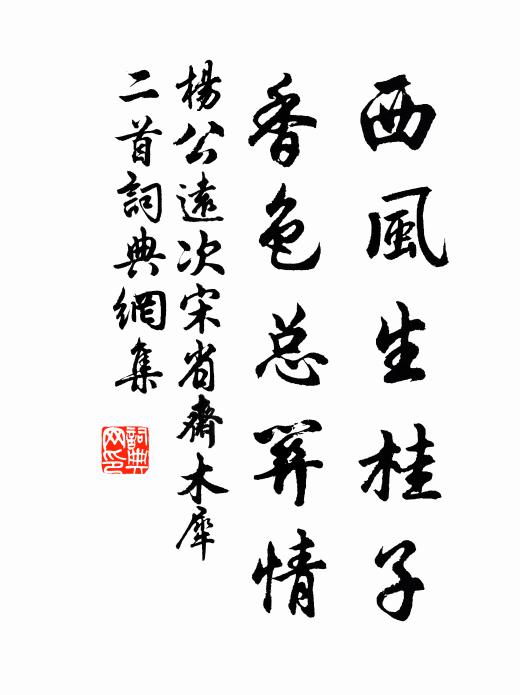 西風生桂子
香色总關情
楊公遠次宋省齋木犀
二首詞典網集
詞典
网印